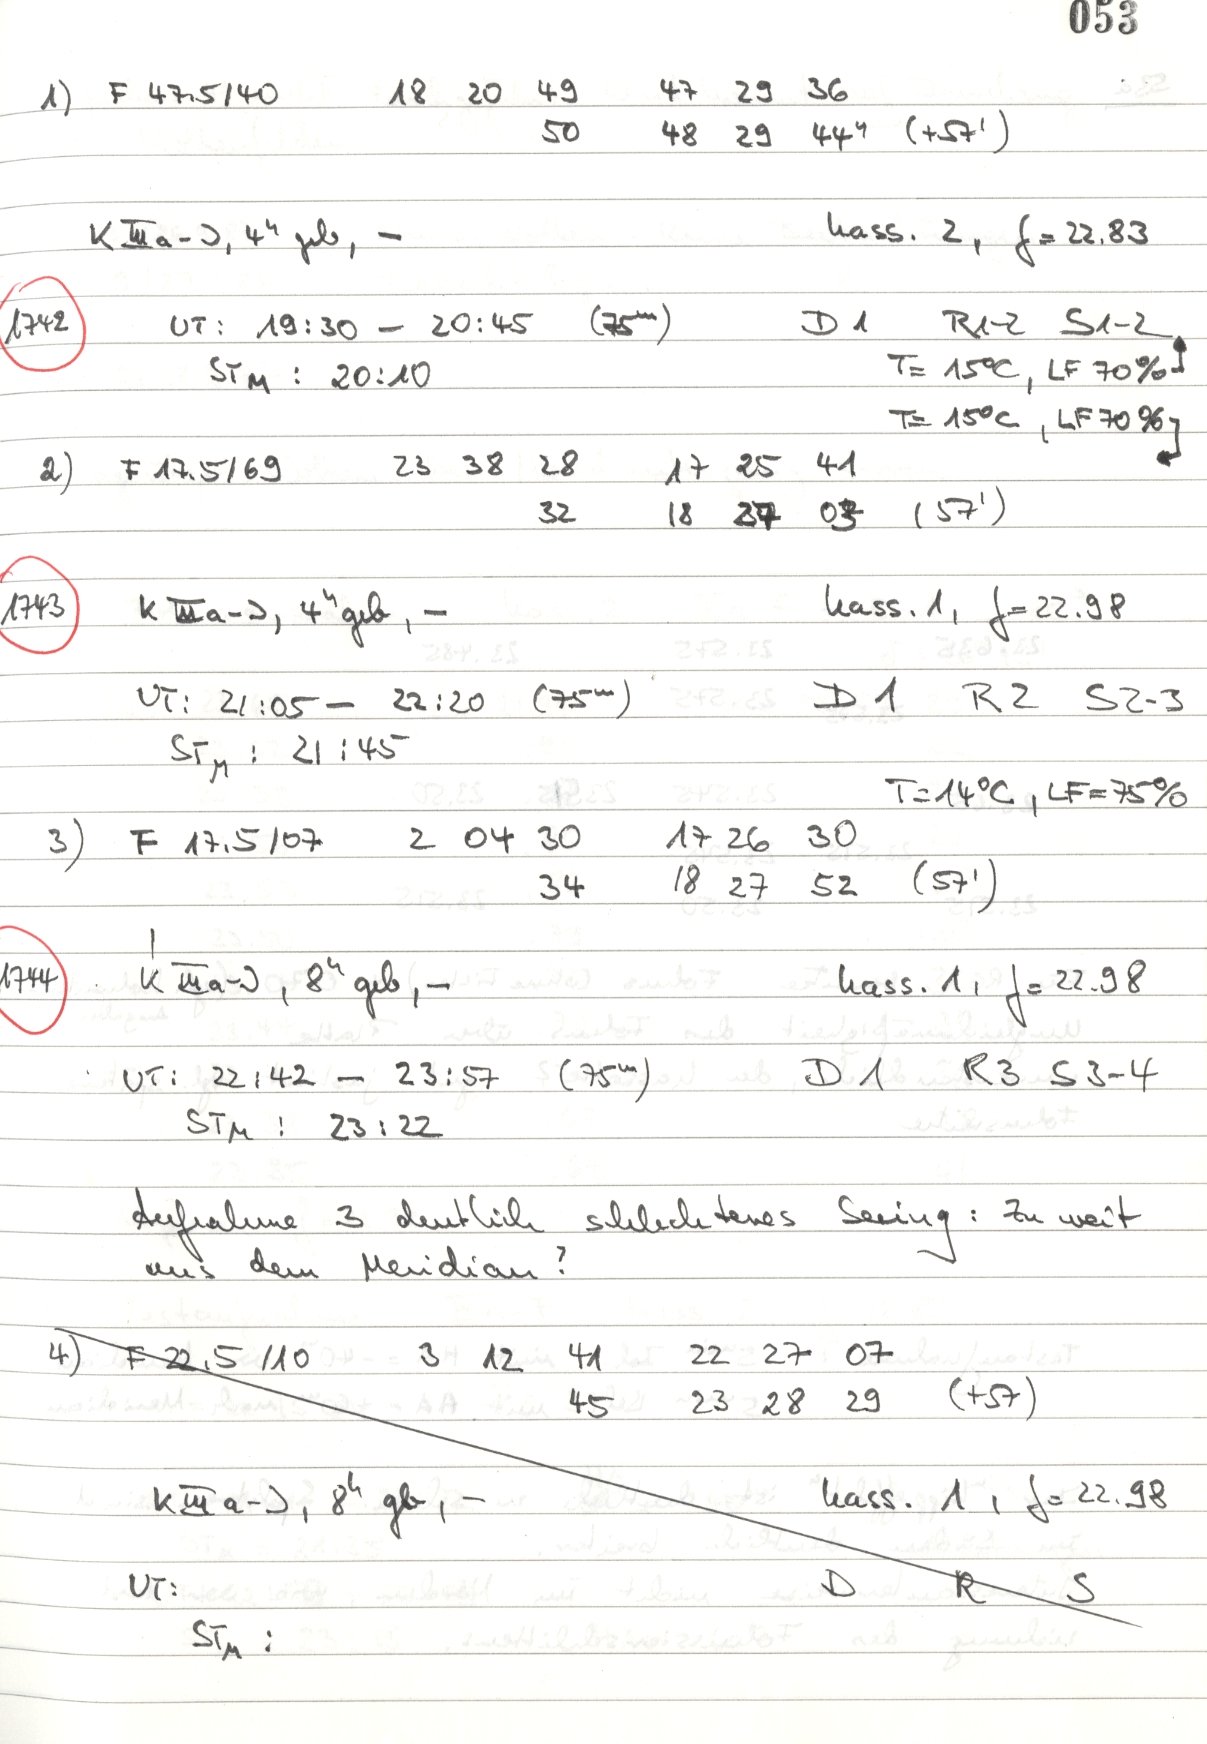 053
1) F 47.5/40 18 20 49 47 29 36
50 48 29 44" (+57')
K IIIa-J, 4h geb, - Kass. 2, f=22.83
1742 UT: 19:30 - 20:45 (75m) D1 R1-2 S1-2
STM : 20:10 T= 15°C, LF 70%
T= 15°C, LF 70%
2) F 17.5/69 23 38 28 17 25 41
32 18 27 03 (57')
1743 K IIIa-J, 4h geb, - Kass. 1, f=22.98
UT: 21:05 - 22:20 (75m) D1 R2 S2-3
STM : 21:45
T=14°C, LF=75%
3) F 17.5/07 2 04 30 17 26 30
34 18 27 52 (57')
1744 K IIIa-J, 8h geb, - Kass. 1, f=22.98
UT: 22:42 - 23:57 (75m) D1 R3 S3-4
STM : 23:22
Aufnahme 3 deutlich schlechteres Seeing: Zu weit
aus dem Meridian?
4) F 22.5/10 3 12 41 22 27 07
45 23 28 29 (+57)
K IIIa-J, 8h gb, - Kass. 1, f=22.98
UT: D R S
STM :